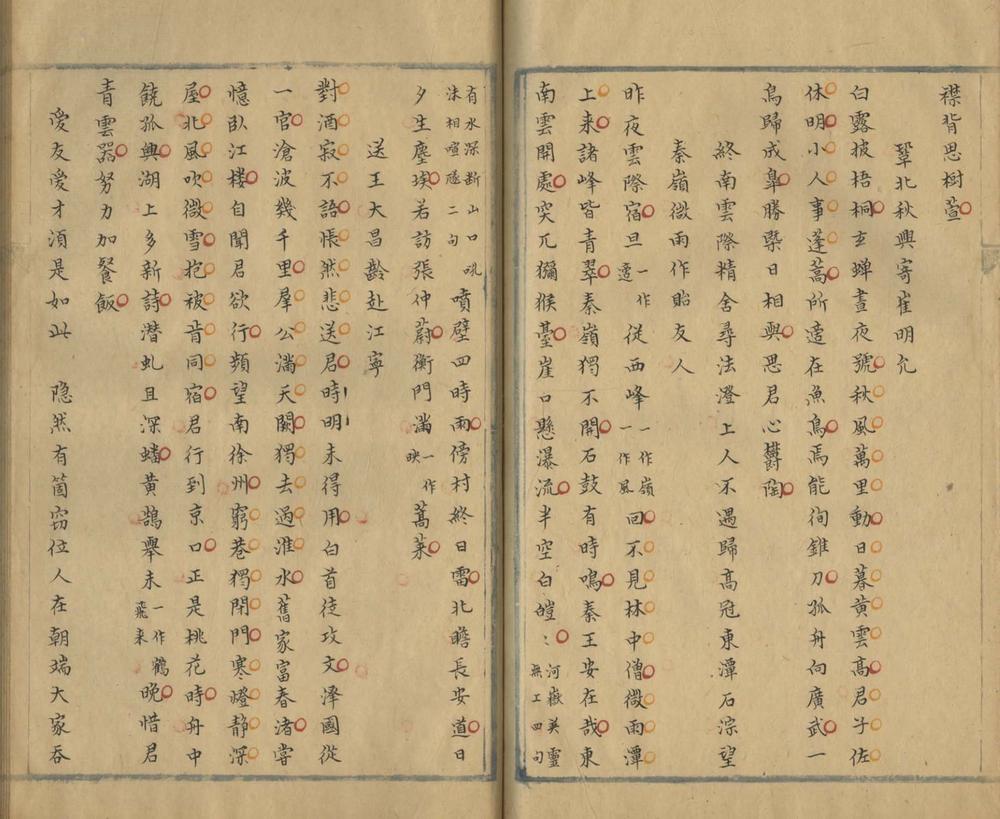 襟背思樹萱
鞏北秋興寄崔明允
白露披梧桐玄蟬晝夜號秋風萬里動日暮黃雲高君子佐
休明小人事蓬蒿所適在魚鳥焉能徇錐刀孤舟向廣武一
鳥歸成皐勝槩日相與思君心欝陶
終南雲際精舍尋法澄上人不遇歸高冠東潭石淙望
秦嶺微雨作貽友人
昨夜雲際宿旦一作遆從西峰一作嶺一作風回不見林中僧微雨潭
上来諸峰皆青翠秦嶺獨不開石鼓有時鳴秦王安在哉東
南雲開處突兀獼猴臺崖口懸瀑流半空白皚〻河嶽英靈無工四句
有水深断山口吼沫相喧豗二句噴壁四時雨傍村終日雷北瞻長安道日
夕生塵埃若訪張仲蔚衡門滿一作映蒿莱
送王大昌齡赴江寧
對酒寂不語悵然悲送君時明未得用白首徒攻文澤國從
一官滄波幾千里羣公滿天闕獨去過淮水舊家富春渚嘗
憶臥江楼自聞君欲行頻望南徐州窮巷獨閉門寒燈静深
屋北風吹微雪抱被肯同宿君行到京口正是桃花時舟中
饒孤興湖上多新詩潛虬且深蟠黄鵠舉未一作鶴飛来晚惜君
青雲器努力加餐飯
愛友愛才須是如此　隐然有箇窃位人在朝端大家吞